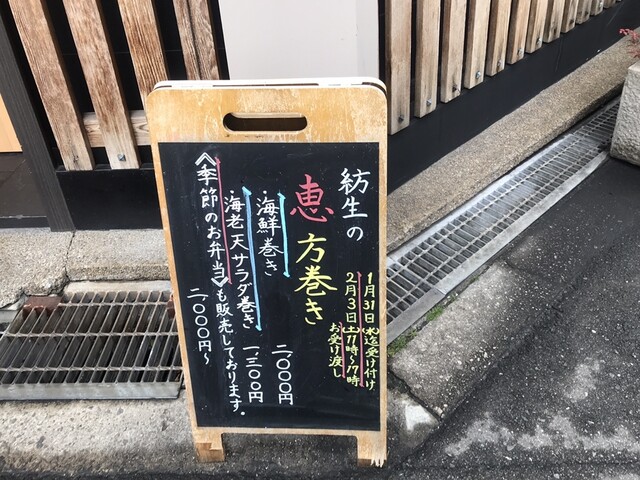 紡生の
恵方巻き
1月31日(水)迄受け付け
2月3日(土)11時〜17時
お受け渡し
・海鮮巻き 二、〇〇〇円
・海老天サラダ巻き 一、三〇〇円
《季節のお弁当》も販売しております。
二、〇〇〇円〜